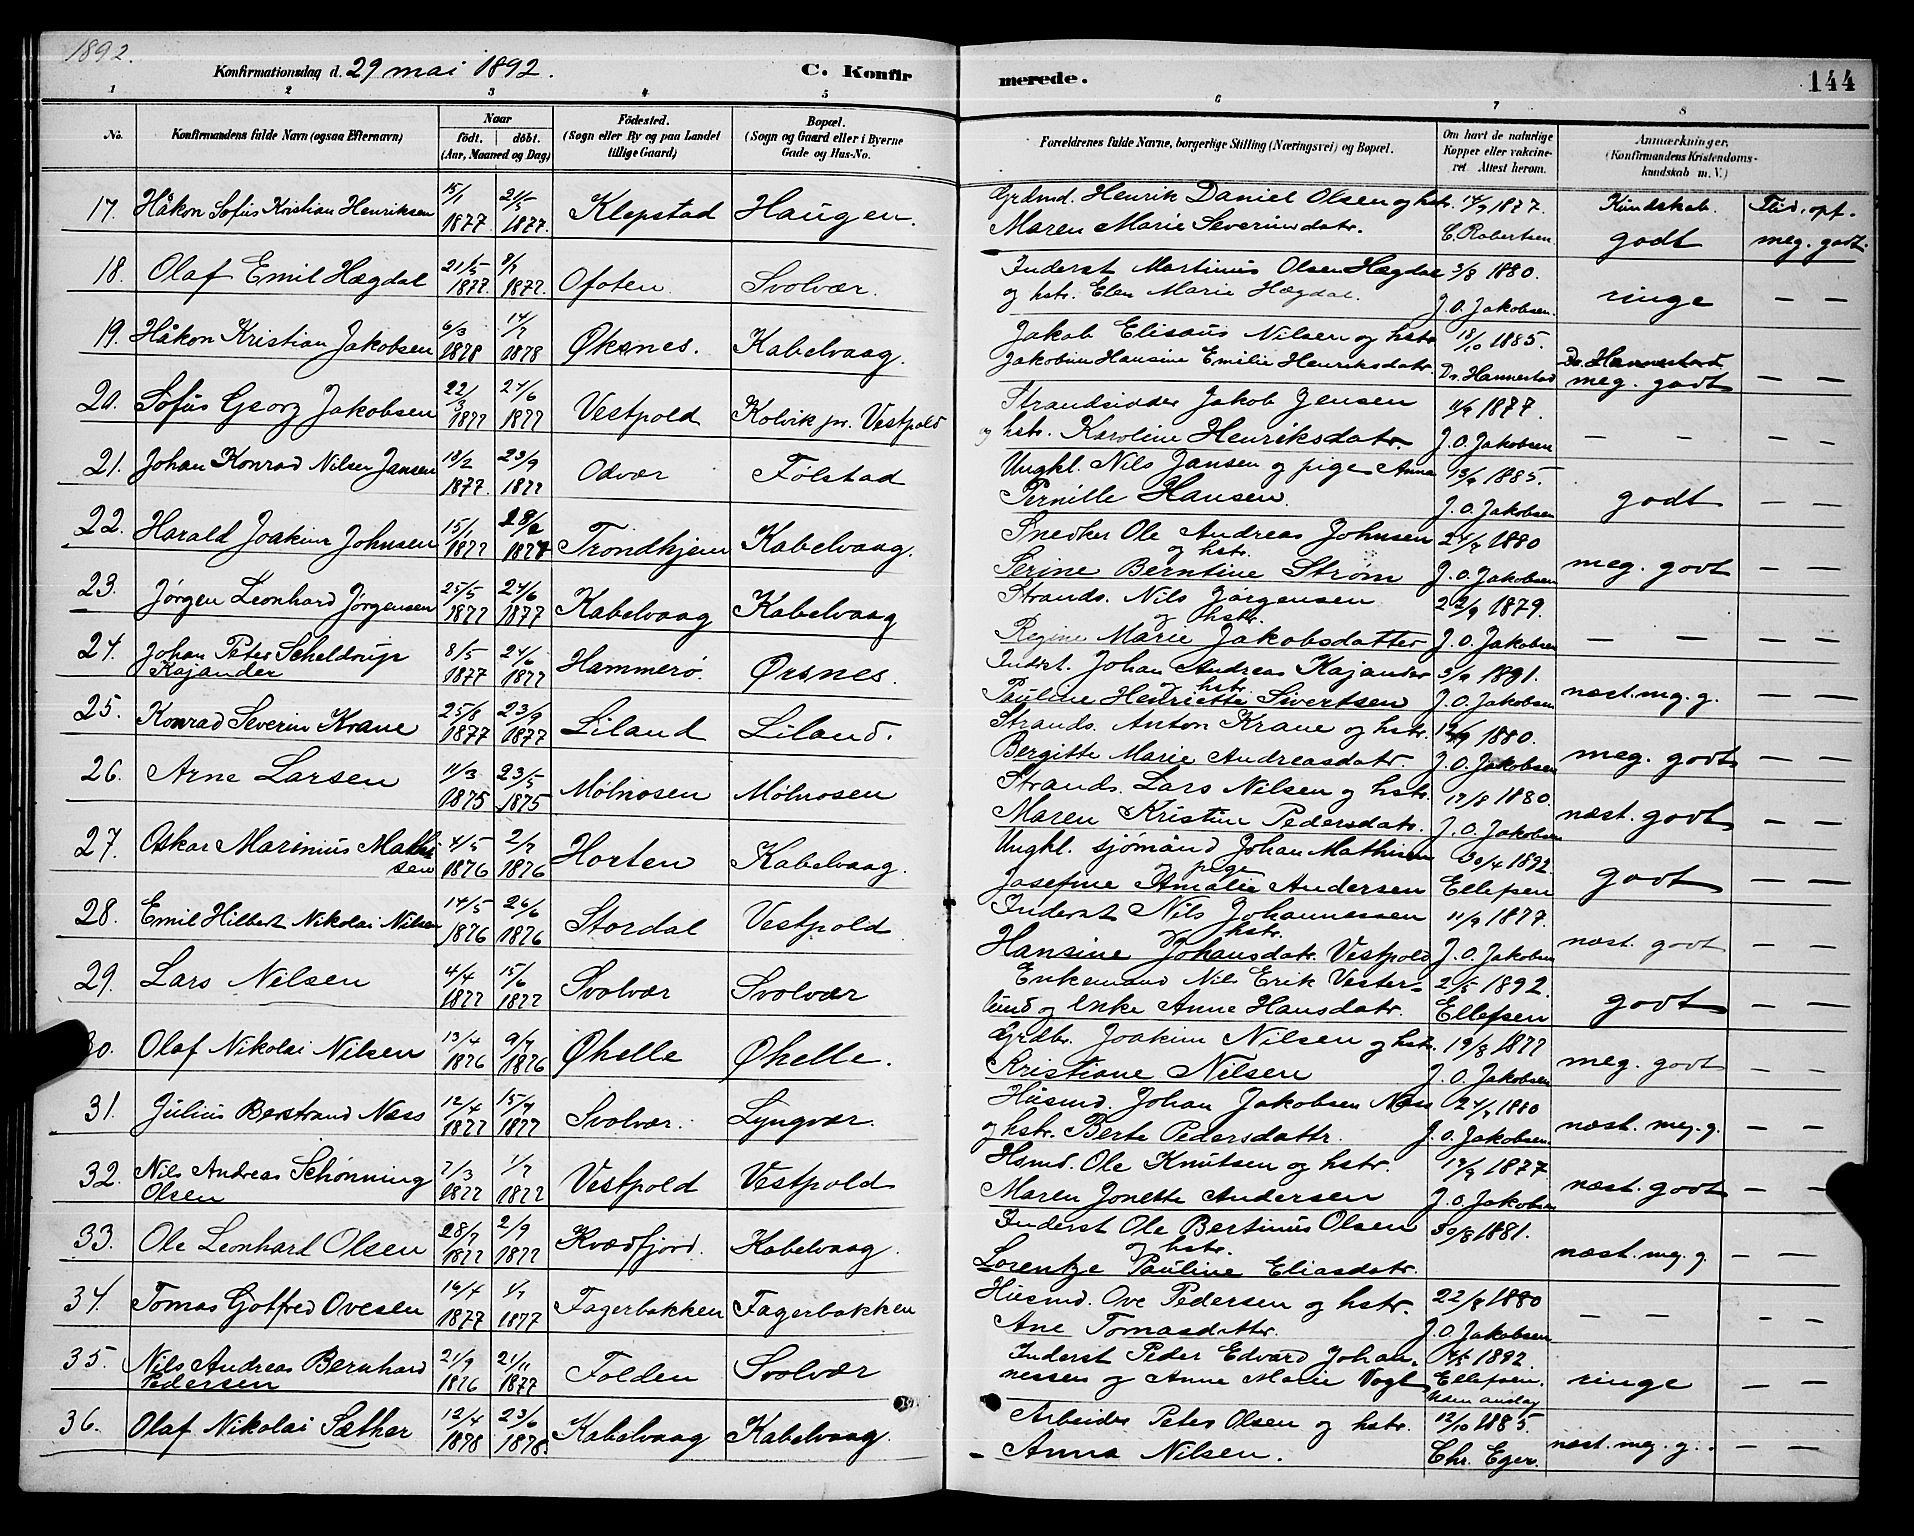 1892.
Konfirmationsdag d. 29 mai 1892. C. Konfir merede. 144
1 2 3 4 5 6 7 8
No. Konfirmandens fulde Navn (ogsaa Efternavn)
Naar födt. döbt. (Aar, Maaned og Dag)
Födested. (Sogn eller By og paa Landet tillige Gaard)
Bopæl. (Sogn og Gaard eller i Byerne Gade og Hus-No.
Forældrenes fulde Navne, borgerlige Stilling (Næringsvei) og Bopæl.
Om havt de naturlige Kopper eller vakcineret. Attest herom.
Anmærkninger. (Konfirmandens Kristendomskundskab m. V.)
17. Håkon Sofus Kristian Henriksen 15/1 1877 21/5 1877. Klepstad Haugen. Grdmd. Henrik Daniel Olsen og hstr. 14/9 1877. Kundskab. Flid. opf.
Maren Marie Severinsdatr. C. Robertsen godt meg. godt.
18. Olaf Emil Hægdal 21/5 1877. 8/7 1877. Ofoten. Svolvær. Inderst Martinus Olsen Hægdal 3/8 1880.
og hstr. Elen Marie Hægdal. J. O. Jakobsen. ringe — —
19. Håkon Kristian Jakobsen 6/3 1878 14/7 1878 Øksnes. Kabelvaag. Jakob Elisæus Nilsen og hstr. 18/10 1885.
Jakobine Hansine Emilie Henriksdatr. Dr. Hannestad Dr. Hannestad meg. godt — —
20. Sofus Georg Jakobsen 22/3 1877 24/6 1877 Vestpold Kolvik pr. Vestpold Strandsidder Jakob Jensen 11/9 1877.
og hstr. Karoline Henriksdatr. J. O. Jakobsen — — —
21. Johan Konrad Nilsen Jansen 18/2 1877. 23/9 1877 Odvær Følstad Ungkl. Nils Jansen og pige Anna 13/9 1885.
Pernille Hansen. J. O. Jakobsen godt — —
22. Harald Joakim Johnsen 15/1 1877 28/2 1877 Trondhjem Kabelvaag. Snedker Ole Andreas Johnsen 24/7 1880
og hstr. Serine Berntine Strøm J. O. Jakobsen meg. godt — —
23. Jørgen Leonhard Jørgensen 25/5 1877 24/6 1877 Kabelvaag Kabelvaag Strands. Nils Jørgensen 22/9 1879.
og hstr. Regine Marie Jakobsdatter J. O. Jakobsen — — —
24. Johan Peter Scheldrup Kajander 8/5 1877 24/6 1877 Hammerø. Ørsnes. Inderst. Johan Andreas Kajander 5/9 1891.
og hstr. Pauline Henriette Sivertsen J. O. Jakobsen næst. meg. g. — —
25. Konrad Severin Krane 25/8 1877 23/9 1877 Liland Liland. Strands. Anton Krane og hstr. 12/9 1880.
Bergitte Marie Andreasdatr. J. O. Jakobsen meg. godt — —
26. Arne Larsen 11/3 1875 23/5 1875 Mølnosen Mølnosen Strands. Lars Nilsen og hstr. 17/8 1880.
Maren Kristine Pedersdatr. J. O. Jakobsen næst. godt — —
27. Oskar Marinius Mathisen 4/5 1876 2/7 1876 Horten Kabelvaag. Ungkl. sjømand Johan Mathisen 30/4 1892.
og pige Josefine Amalie Andersen Ellefsen godt — —
28. Emil Hilbert Nikolai Nilsen 14/5 1876 26/6 1876 Stordal Vestpold Inderst Nils Johannessen 11/9 1877.
og hstr. Hansine Johansdatr. Vestpold J. O. Jakobsen næst. godt — —
29. Lars Nilsen 4/4 1877 15/6 1877 Svolvær Svolvær Enkemand Nils Erik Vester- 2/5 1892.
lund og enke Anne Hansdatr. Ellefsen godt — —
30. Olaf Nikolai Nilsen 13/4 1876 9/7 1876 Øhelle Øhelle. Grdbr. Joakim Nilsen og hstr. 19/8 1877
Kristiane Nilsen J. O. Jakobsen meg. godt — —
31. Julius Berstrand Næss 12/4 1877 15/7 1877 Svolvær. Lyngvær. Husmd. Johan Jakobsen Næss 24/7 1880
og hstr. Berte Pedersdattr. J. O. Jakobsen næst. meg. g. — —
32. Nils Andreas Schønning Olsen 7/3 1877 1/7 1877 Vestpold Vestpold Hsmd. Ole Knutsen og hstr. 17/9 1877
Maren Jonette Andersen J. O. Jakobsen næst. godt — —
33. Ole Leonhart Olsen 28/7 1877 2/9 1877 Kvædfjord. Kabelvaag. Inderst Ole Bertinus Olsen 30/8 1881.
og hstr. Lorentze Pauline Eliasdatr. næst. meg. g. — —
34. Tomas Gotfred Ovesen 16/4 1877 1/7 1877 Fagerbakken Fagerbakken Husmd. Ove Pedersen og hstr. 22/8 1880
Ane Tomasdatter. J. O. Jakobsen — — —
35. Nils Andreas Bernhard Pedersen 21/9 1876 21/11 1877 Folden Svolvær Inderst Peder Edvard Johan- 4/5 1892.
nessen og Anne Marie Vogt Ellefsen. Uden anslag ringe — —
36. Olaf Nikolai Sæther 12/4 1878 23/6 1878. Kabelvaag Kabelvaag. Arbeider Peter Olsen og hstr. 12/10 1885.
Anna Nilsen. Chr. Eger. næst. meg. g. — —